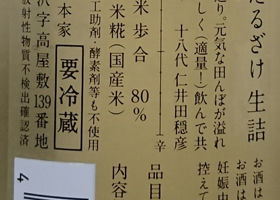 たるざけ 生詰
り。元気な田んぼが溢れ
しく（適量！）飲んで共
十八代 仁井田穏彦
辛
米歩合 80%
米糀（国産米）
工助剤、酵素剤等も不使用
本家
要冷蔵
沢字高屋敷139番地
放射性物質不検出確認済
お酒は
お酒は
妊娠中
控えて
品目
内容
4